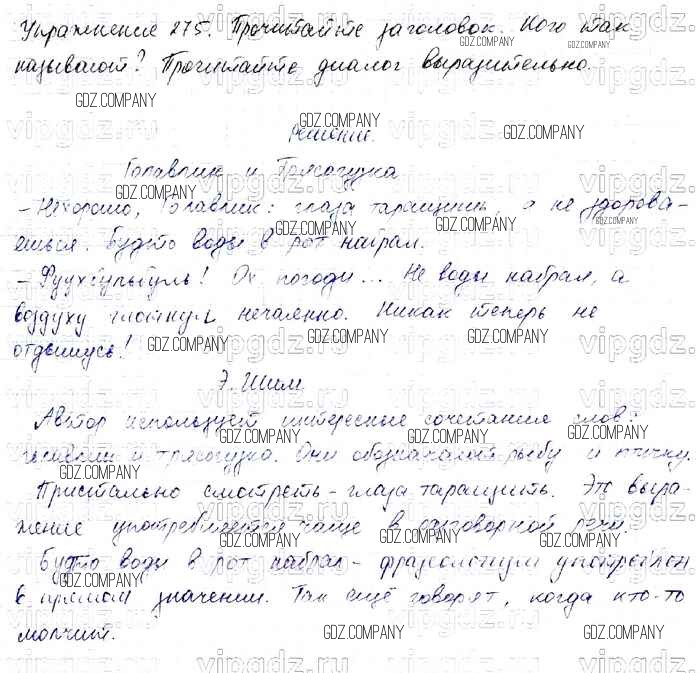 Упражнение 275. Прочитайте заголовок. Кого так
называют? Прочитайте диалог выразительно.
Решение.
Голавлик и Трясогузка
– Нехорошо, Голавлик: глаза таращишь, а не здорова-
ешься. Будто воды в рот набрал.
– Ох погоди... Не воды набрал, а
воздуху глотнул нечаянно. Никак теперь не
отдышусь!
Э. Шим
Автор использует интересные сочетания слов:
голавлик и трясогузка. Они обозначают рыбу и птичку.
Пристально смотреть – глаза таращить. Это выра-
жение употребляется чаще в разговорной речи.
Будто воды в рот набрал – фразеологизм употреблён
в прямом значении. Так ещё говорят, когда кто-то
молчит.
GDZ.COMPANY
vipgdz.ru